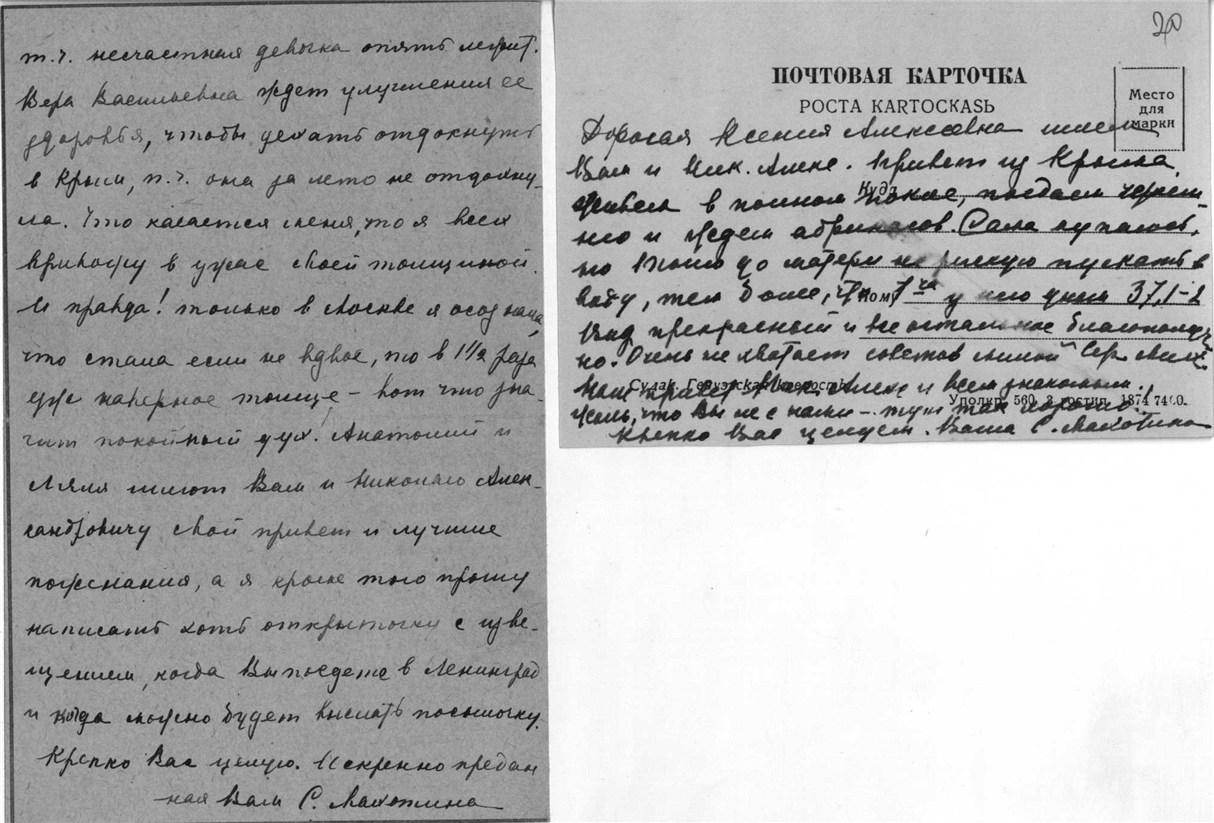 т.ч. несчастная девочка опять лежит.
Вера Васильевна ждет улучшения ее
здоровья, чтобы уехать отдохнуть
в Крым, т.ч. она за лето не отдохну-
ла. Что касается меня, то я всех
привожу в ужас своей толщиной.
И правда! только в Москве я осознала,
что стала если не вдвое, то в 1½ раза
уже наверное толще – вот что зна-
чит покойный дух. Анатолий и
Ляля шлют Вам и Николаю Алек-
сандровичу свой привет и лучшие
пожелания, а я кроме того прошу
написать хоть открыточку с изве-
щением, когда Вы поедете в Ленинград
и когда можно будет выслать посылочку.
Крепко Вас целую. Искренно предан
ная Вам С. Махотина
20
ПОЧТОВАЯ КАРТОЧКА
POCTA KARTOCKASЬ
Место
для
марки
Дорогая Ксения Алексеевна шлем
Вам и Ник. Алекс. привет из Крыма.
Куда
Живем в полном покое, поедаем череш-
ню и ждем абрикосов. Сама купаюсь,
но до матери не рискую пускать в
воду, тем более, что у него днем 37,1–2
Кому
Вид прекрасный и все остальное благополуч
но. Очень не хватает советов милой
Судак. Генуэзская крепость
Наш привет и всем знакомым.
Уполкр. 560. 3 гостип. 1874 7400.
Жаль, что Вы не с нами – тут так хорошо.
Крепко Вас целуем. Ваша С. Махотина